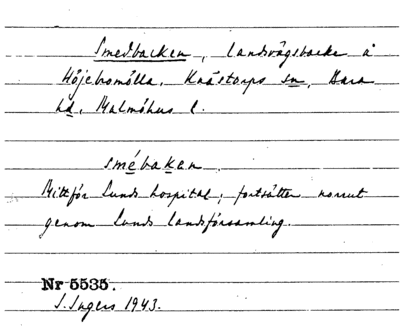 Smedbacken, landsvägsbacke å
Höjebromölla, Knästorps sn, Bara
hd, Malmöhus l.
smébaken.
Mittför Lunds hospital; fortsätter norrut
genom Lunds landsförsamling.
Nr 5535.
I. Ingers 1943.